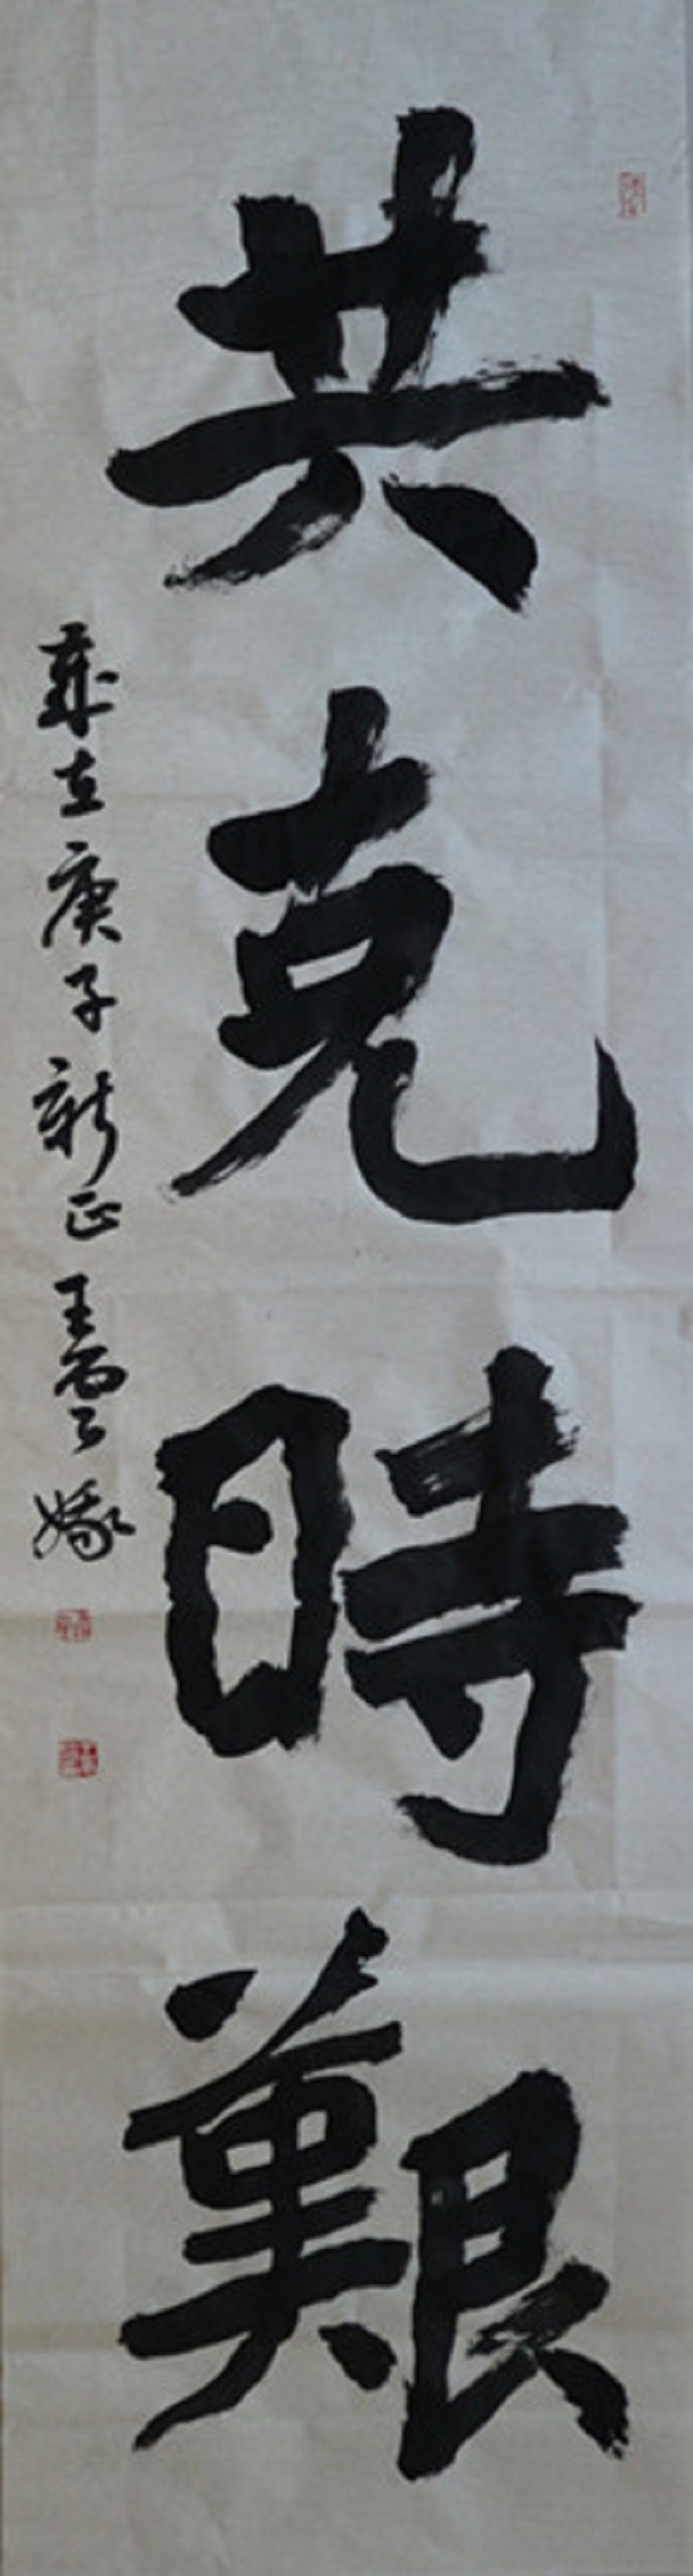 共克時艱
歲在庚子新正王雪